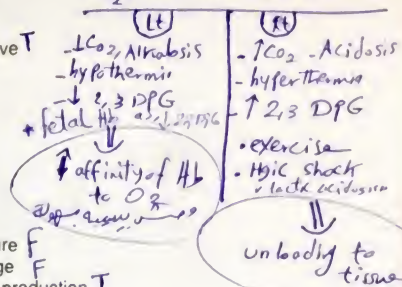 2
Lt
Rt
ve T
- ↓CO₂, Alkalosis
- hypothermia
- ↓ 2,3 DPG
+ fetal Hb as ↓ 2,3 DPG
⇓
↑ affinity of Hb
to O₂
- ↑CO₂ - Acidosis
- hyperthermia
- ↑ 2,3 DPG
• exercise
• Hgic shock
lactic acidosis
⇓
unloading to
tissue
ure F
ge F
production T